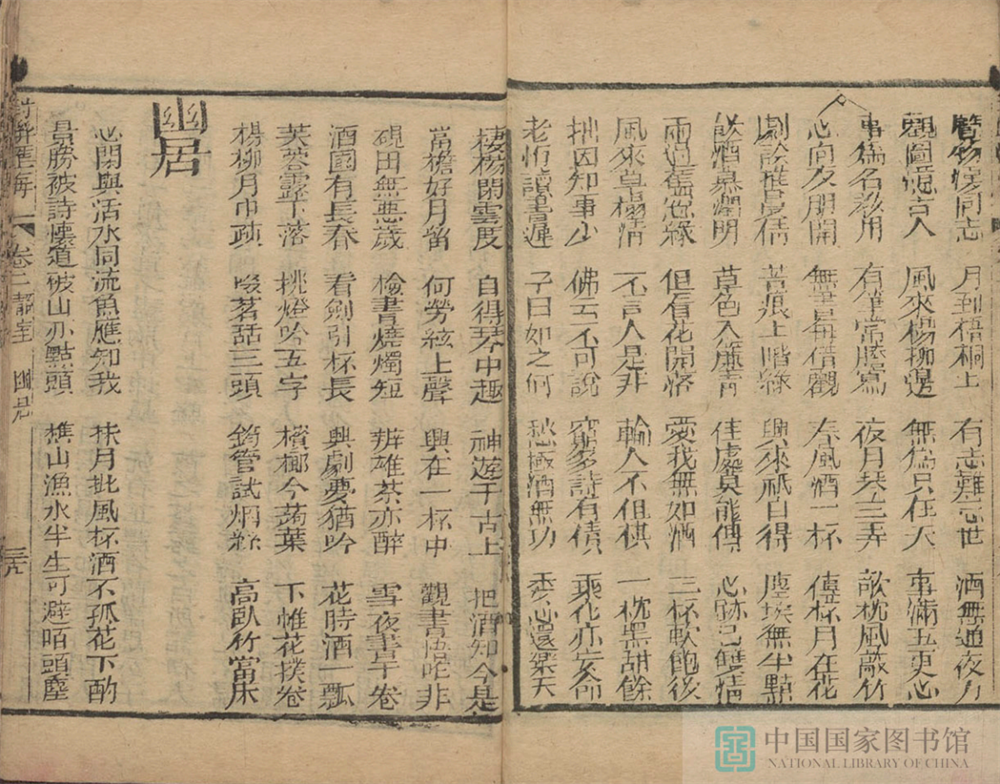 同志 月到梧桐上 有志難忘世 酒無通夜力
觀圖憶古人 風來楊柳邊 無為只任天 事滿五更心
事為名教用 有筆常謄寫 夜月琴三弄 欹枕風敲竹
心向友朋開 無書每借觀 春風酒一杯 傳杯月在花
劇談惟見情 苔痕上階綠 興來祇自得 塵埃無半點
飲酒慕淵明 草色入簾青 佳處莫能傳 心跡已雙清
雨過舊池綠 但看花開落 愛我無如酒 三杯軟飽後
風來草榻清 不言人是非 輸人不但棋 一枕黑甜餘
拙因知事少 佛云不可說 窮多詩有債 乘化亦安命
老怕讀書遲 子曰如之何 愁極酒無功 委心還樂天
棲楊閒雲度 自得琴中趣 神遊千古上 把酒知今是
當檐好月留 何勞絃上聲 興在一杯中 觀書悟昨非
硯田無惡歲 檢書燒燭短 辨雄茶亦醉 雪夜書千卷
酒國有長春 看劍引杯長 興劇夢猶吟 花時酒一瓢
芙蓉露下落 挑燈吟五字 檳榔今蒟葉 下帷花撲卷
楊柳月中疎 啜茗話三頭 筠管試烟絲 高臥竹當床
幽居
心閒與活水同流魚應知我 扶月批風杯酒不孤花下酌
景勝被詩慳道破山亦點頭 樵山漁水半生可避陌頭塵
卷二 靜室 幽居 三十九
中国国家图书馆
NATIONAL LIBRARY OF CHINA